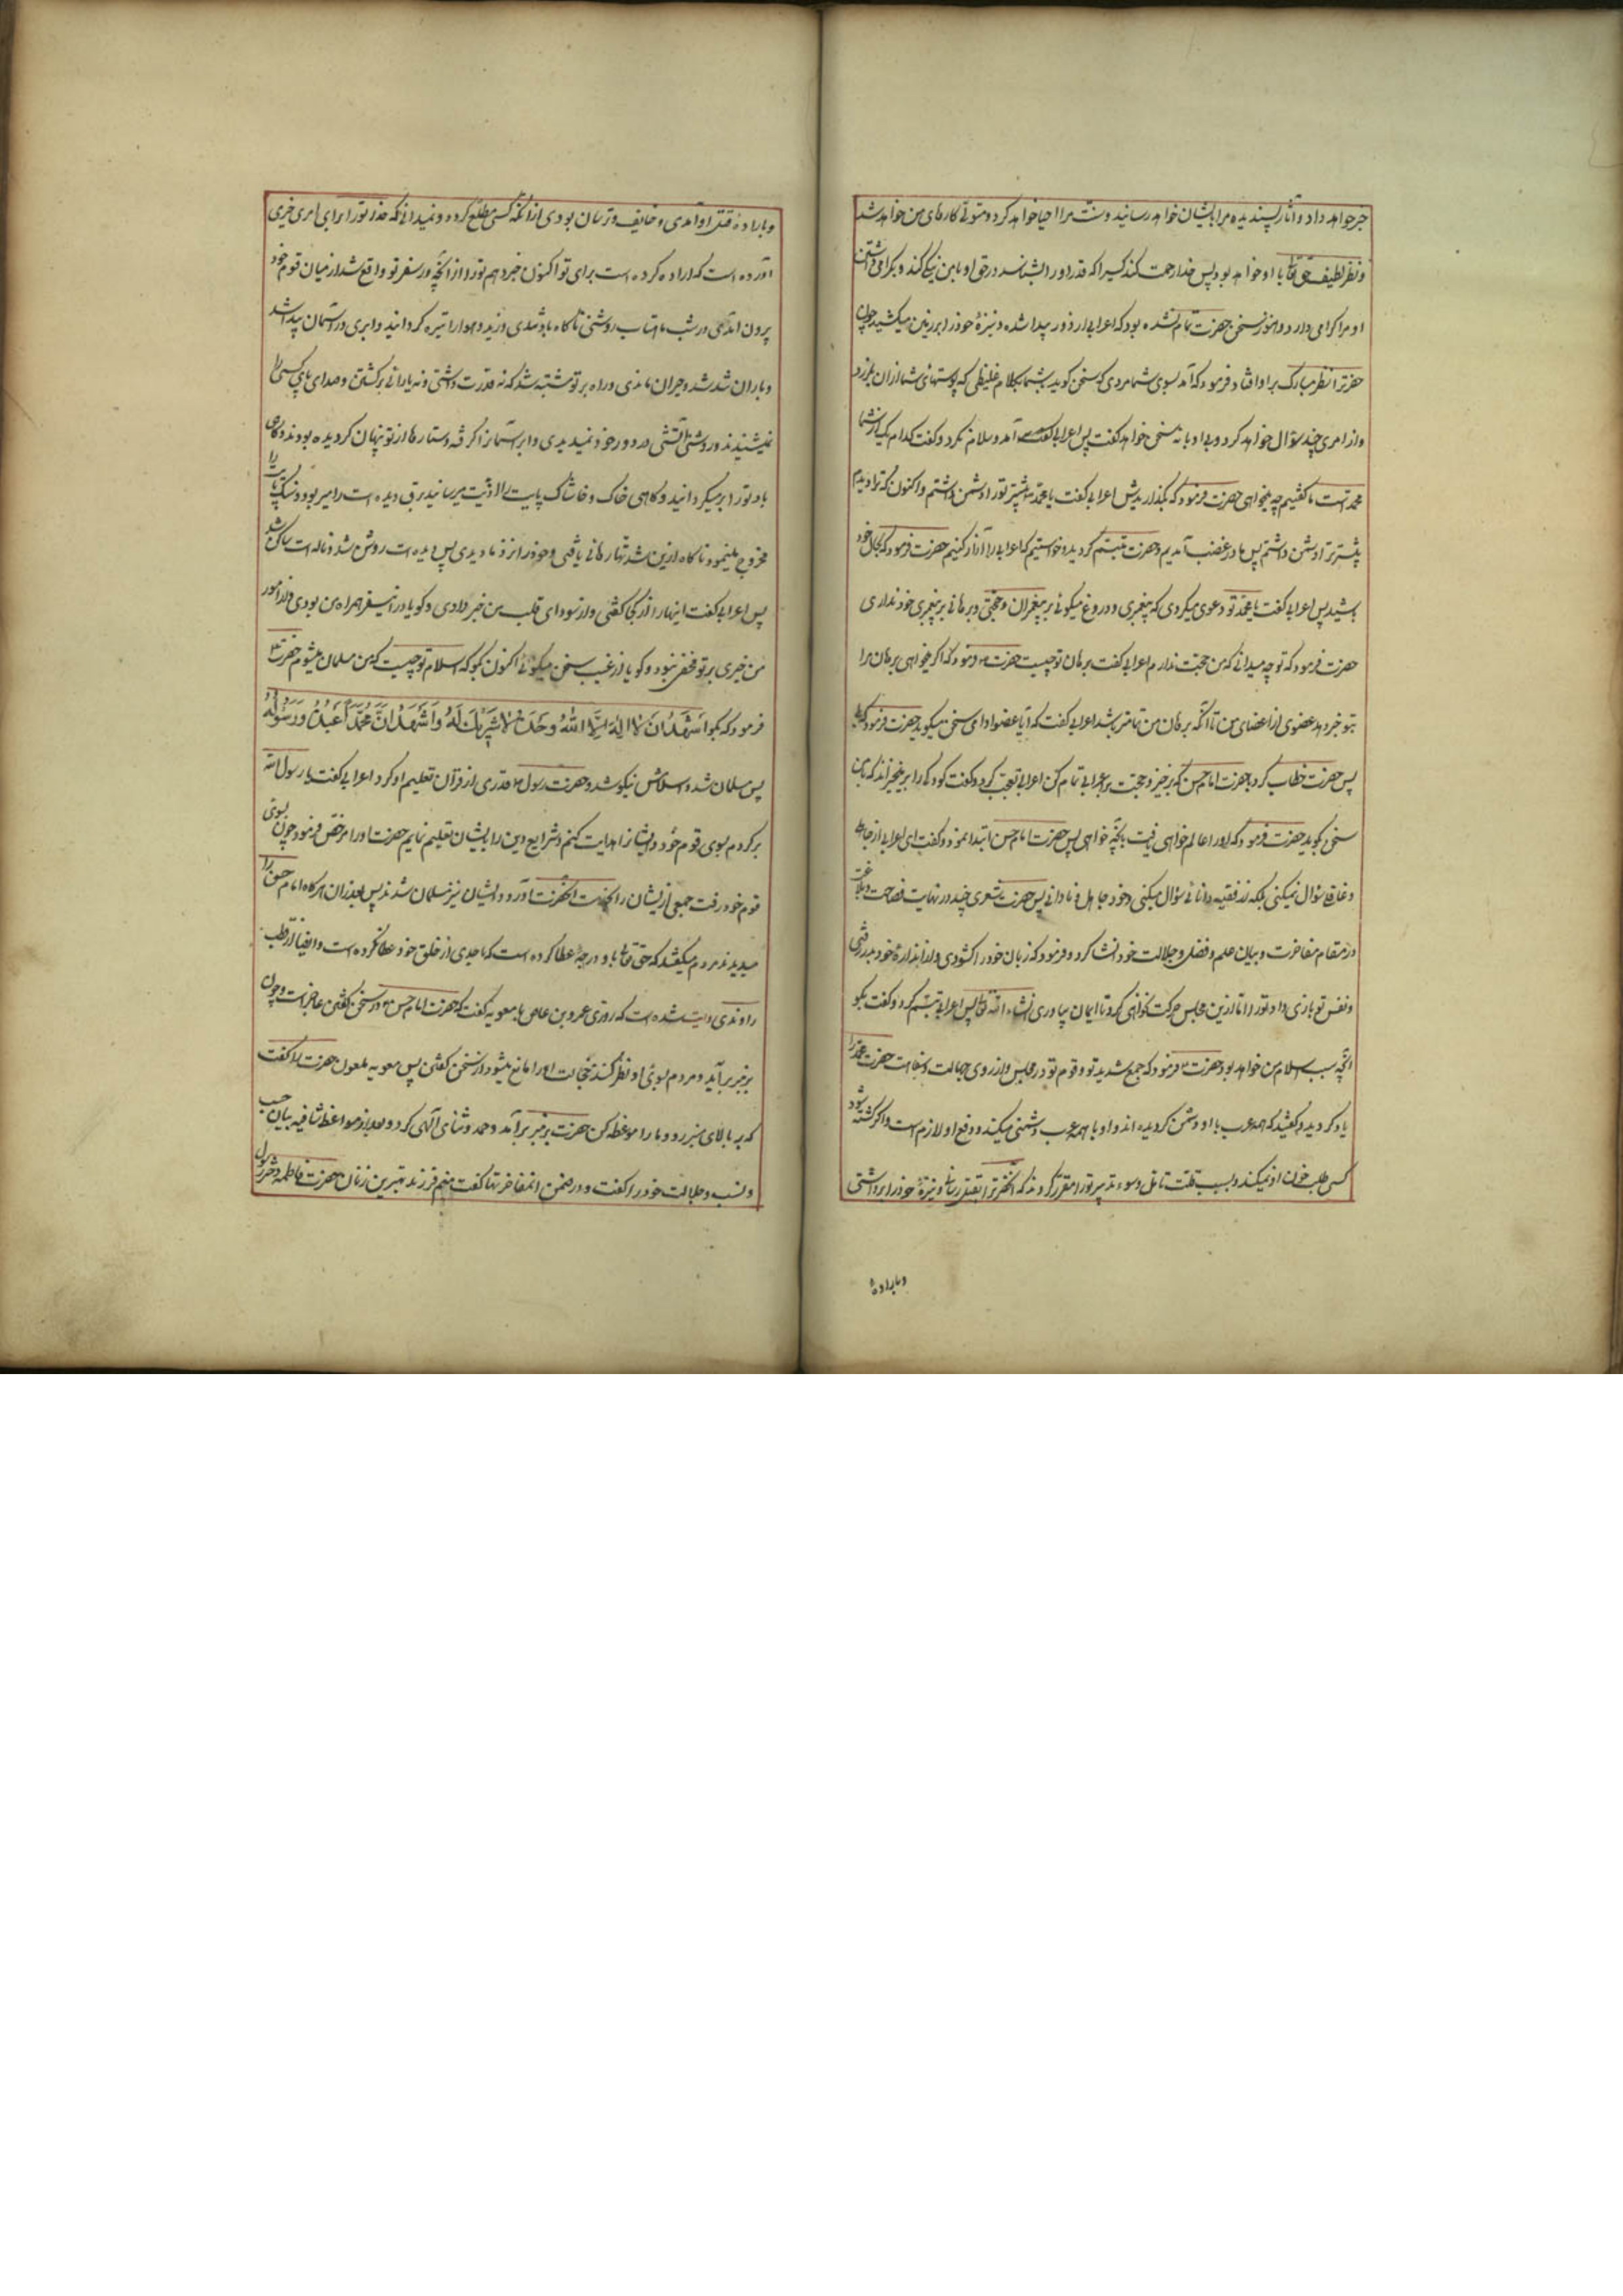 خبر خواهد داد و آثار پسندیده مرا بایشان خواهد رسانید و سنت مرا احیا خواهد کرد و متولی کارهای من خواهد شد
و نظر لطیف حق تعالی با او خواهد بود پس خدا رحمت کند کسیرا که قدر او را بشناسد و در حق او با من نیکی کند و بکرامی داشتن
او مرا کرامی دارد و هنوز سخن حضرت تمام نشده بود که اعرابی از دور پیدا شده و نیزهٔ خود را بر زمین میکشید چون
حضرترا نظر مبارک بر او افتاد فرمود که آمد بسوی شما مردی که سخن کوید بشما بکلام غلیظی که پوستهای شما از ان بلرزد
و از امری چند سؤال خواهد کرد و بی ادبانه سخن خواهد کفت پس اعرابی آمد و سلام نکرد و کفت کدام یک از شما
محمد است ما کفتیم چه میخواهی حضرت فرمود که بگذاریدش اعرابی کفت یا محمد من پیشتر تو را دشمن داشتم و اکنون که ترا دیدم
بیشتر ترا دشمن داشتم پس ما در غضب آمدیم و حضرت متبسم کردید و خواستیم که اعرابی را آزار کنیم حضرت فرمود که بحال خود
باشید پس اعرابی کفت یا محمد تو دعوی میکردی که پیغمبری و دروغ میکوئی بر پیغمبران و حجتی و برهانی بر پیغمبری خود نداری
حضرت فرمود که تو چه میدانی که من حجت ندارم اعرابی کفت برهان تو چیست حضرت فرمود که اکر میخواهی برهان مرا
بتو خبر دهد عضوی از اعضای من تا آنکه برهان من تمامتر باشد اعرابی کفت که آیا عضو ادای سخن میکوید حضرت فرمود که بلی
پس حضرت خطاب کرد بحضرت امام حسن که برخیز و حجت بر اعرابی تمام کن اعرابی تعجب کرد و کفت کودکی را برمیخیزاند که با من
سخن بکوید حضرت فرمود که او را عالم خواهی یافت بانچه خواهی پس حضرت امام حسن ابتدا نمود و کفت ای اعرابی از جاهلی
و غافلی سؤال نمیکنی بلکه از فقیه دانائی سؤال میکنی و خود جاهل و نادانی پس حضرت شعری چند در نهایت فصاحت و بلاغت
در مقام مفاخرت و بیان علم و فضل و جلالت خود انشا کرد و فرمود که زبان خود را کشودی و از اندازهٔ خود بدر رفتی
و نفس تو بازی داد تو را اما ازین مجلس حرکت نخواهی کرد تا ایمان بیاوری انشاء الله تعالی پس اعرابی تبسم کرد و کفت بکو
انچه سبب اسلام من خواهد بود حضرت فرمود که جمع شدید تو و قوم تو در مجلس و از روی جهالت و سفاهت حضرت محمد را
یاد کردید و کفتید که همه عرب با او دشمن کردیده اند و او با همه عرب دشمنی میکند و دفع او لازم است و اکر کشته شود
کسی طلب خون او نمیکند و بسبب قلت تامل و سوء تدبیر تو را مقرر کردند که آنحضرترا بقتل رسانی و نیزهٔ خود را برداشتی
و باراده
و بارادهٔ قتل او آمدی و خایف و ترسان بودی از آنکه کسی مطلع کردد و نمیدانی که خدا تو را برای امر خیری
آورده است که اراده کرده است برای تو اکنون خبر دهم تو را از انچه در سفر تو واقع شد از میان قوم خود
بیرون آمدی در شب ماهتاب روشنی ناکاه باد تندی وزید و هوا را تیره کردانید و ابری در آسمان پیدا شد
و باران شد شد و حیران ماندی و راه بر تو مشتبه شد که نه قدرت داشتی و نه یارائی برکشتن و صدای پای کسی را
نمیشنیدی و روشنی آتشی در دور خود نمیدیدی و ابر آسمانرا کرفته و ستارها از تو پنهان کردیده بودند و کاهی
باد تو را بر میکردانید و کاهی خاک و خاشاک پایت را اذیت میرسانید برق دیده ات را میربود و سنک پایت را
مجروح مینمود ناکاه ازین شدتها رهائی یافتی و خود را نزد ما دیدی پس دیده ات روشن شد و ناله ات ساکن شد
پس اعرابی کفت اینها را از کجا کفتی و از سودای قلب من خبر دادی و کویا در این سفر همراه من بودی و از امور
من خبری بر تو مخفی نبود و کویا از غیب سخن میکوئی اکنون بکو که اسلام تو چیست که من مسلمان میشوم حضرت
فرمود که بکو اَشْهَدُ اَنْ لا اِلهَ اِلَّا اللهُ وَحْدَهُ لا شَرِیْكَ لَهُ وَاَشْهَدُ اَنَّ مُحَمَّدًا عَبْدُهُ وَرَسُولُهُ
پس مسلمان شد و اسلامش نیکو شد و حضرت رسول قدری از قرآن تعلیم او کرد اعرابی کفت یا رسول الله
برکردم بسوی قوم خود و ایشانرا هدایت کنم و شرایع دین را بایشان تعلیم نمایم حضرت او را مرخص فرمود چون بسوی
قوم خود رفت جمعی از ایشان را بخدمت آنحضرت آورد و ایشان نیز مسلمان شدند پس بعد از ان هرکاه امام حسن را
میدیدند مردم میکفتند که حق تعالی باو درجهٔ عطا کرده است که باحدی از خلق خود عطا نکرده است و ایضا از قطب
راوندی روایت شده است که روزی عمرو بن عاص با معویه کفت که حضرت امام حسن در سخن کفتن عاجز است و چون
بر منبر برآید و مردم بسوی او نظر کنند خجالت او را مانع میشود از سخن کفتن پس معویه ملعون حضرت را کفت
که بر بالای منبر رو و ما را موعظه کن حضرت بر منبر برآمد و حمد و ثنای الهی کرد و بعد از مواعظ شافیه بیان حسب
و نسب و جلالت خود را کفت و در ضمن ان مفاخرتها کفت منم فرزند بهترین زنان حضرت فاطمه دختر رسول